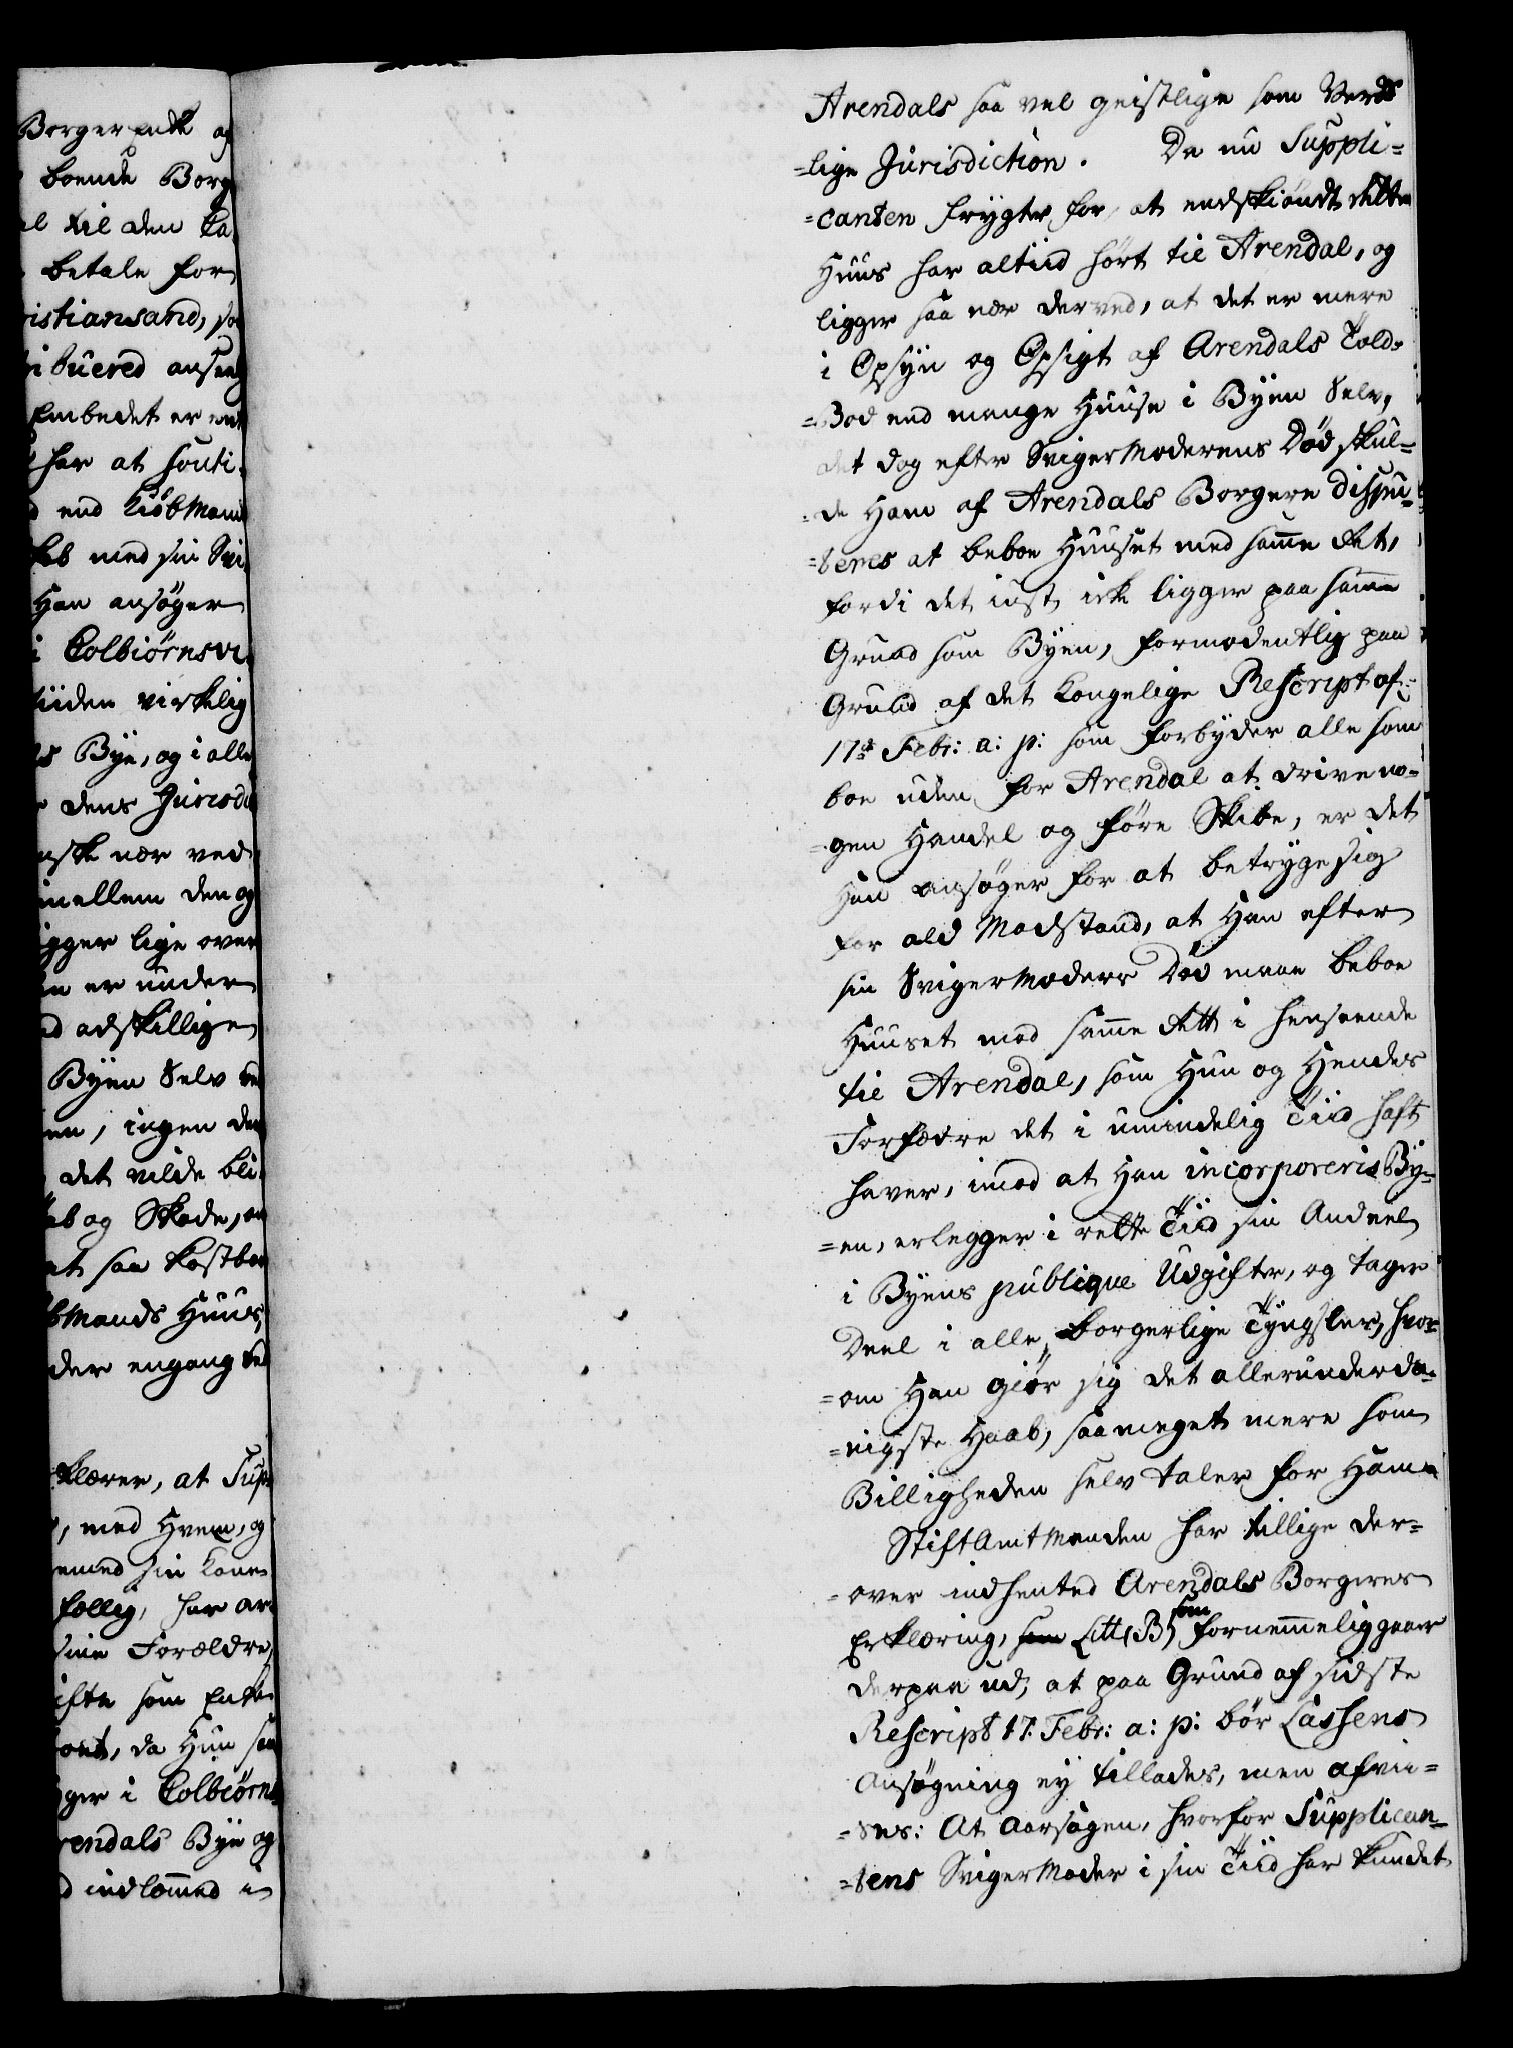 BorgerEnke og
boende Borg
el til den Ca
betale for
ristiansand, so
ribuered anseeg
Embedet er
har at souti-
end Kiøbmand
skab med sin Svi-
Han ansøger
i Colbiørnsvi-
tiiden virkelig
ls Bye, og i alle
dens Jurisdi
nske nær ved
imellem den og
igger lige over
en er under
d adskillige
Byen Selv
en, ingen den
det vilde bli-
ab og Skade, om
et saa kostbar
bmands Huus,
der engang
klærer, at Sup-
, med Hvem, og
emed sin Kone
fællig, har ar-
sine Forældre,
ifte som Enke
ont, da Hun saa
ger i Colbiørns-
rendals Bye og
d indlemmed i
Arendals saa vel geistlige som Verds
=lige Jurisdiction. Da nu Suppli=
=canten frygter for, at endskiøndt dette
Huus har altiid hørt til Arendal, og
ligger saa nær derved, at det er mere
i Opsyn og Opsigt af Arendals Told=
=Bod end mange Huuse i Byen Selv,
det dog efter SvigerModerens Død skul=
=de Ham af Arendals Borgere dispu=
=teres at beboe Huuset med samme Ret,
fordi det iust icke ligger paa samme
Grund som Byen, formodentlig paa
Grund af det Kongelige Rescript af
17de Febr: a: p: som forbyder alle som
boe uden for Arendal at drive no=
=gen Handel og føre Skibe, er det
Han ansøger for at betrygge sig
for ald Modstand, at Han efter
sin SvigerModers Død maae beboe
Huuset med samme Rett i henseende
til Arendal, som Hun og Hendes
Forfædre det i umindelig Tiid haft
haver, imod at Han incorporeris By=
=en, erlegger i rette Tiid sin Andeel
i Byens publique Udgifter, og tager
Deel i alle borgerlige Tyngsler, hvor=
=om Han giør sig det allerunderda=
=nigste Haab, saa meget mere som
Billigheden selv taler for Ham.
StiftAmtManden har tillige der=
=over indhented Arendals Borgeres
Erklæring, som Litt (B) som fornemmelig gaaer
derpaa ud, at paa Grund af sidste
Rescript 17. Febr: a: p: bør Lassens
Ansøgning ey tillades, men afvii=
=ses: At Aarsagen, hvorfor Supplican=
=tens SvigerModer i sin Tiid har kundet